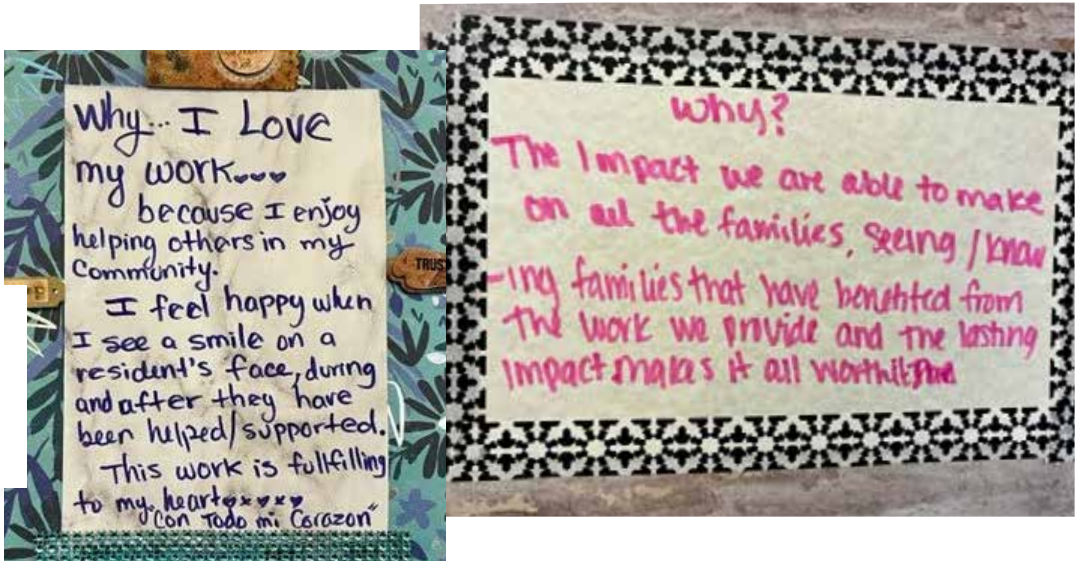 Why... I Love
my work...
because I enjoy
helping others in my
Community.
I feel happy when
I see a smile on a
resident's face, during
and after they have
been helped/supported.
This work is fullfilling
to my heart
"Con Todo mi Corazon"
TRUS
Why?
The Impact we are able to make
on all the families, seeing/know
-ing families that have benefited from
The work we provide and the lasting
Impact makes it all